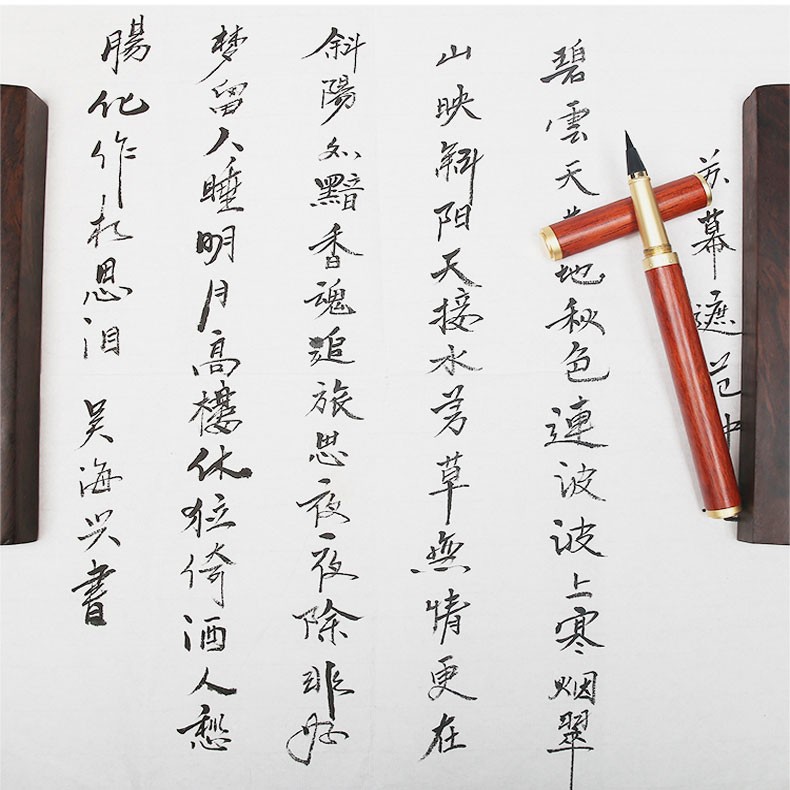 苏幕遮范
碧雲天地秋色連波波上寒烟翠
山映斜阳天接水芳草無情更在
斜陽外黯香魂追旅思夜夜除非好
梦留人睡明月高樓休独倚酒人愁
腸化作相思泪 吴海兴書